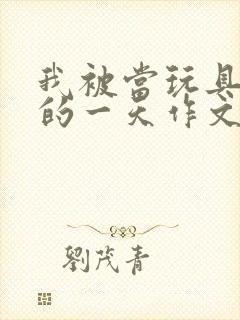 我被當玩具
的一天作文
劉茂青